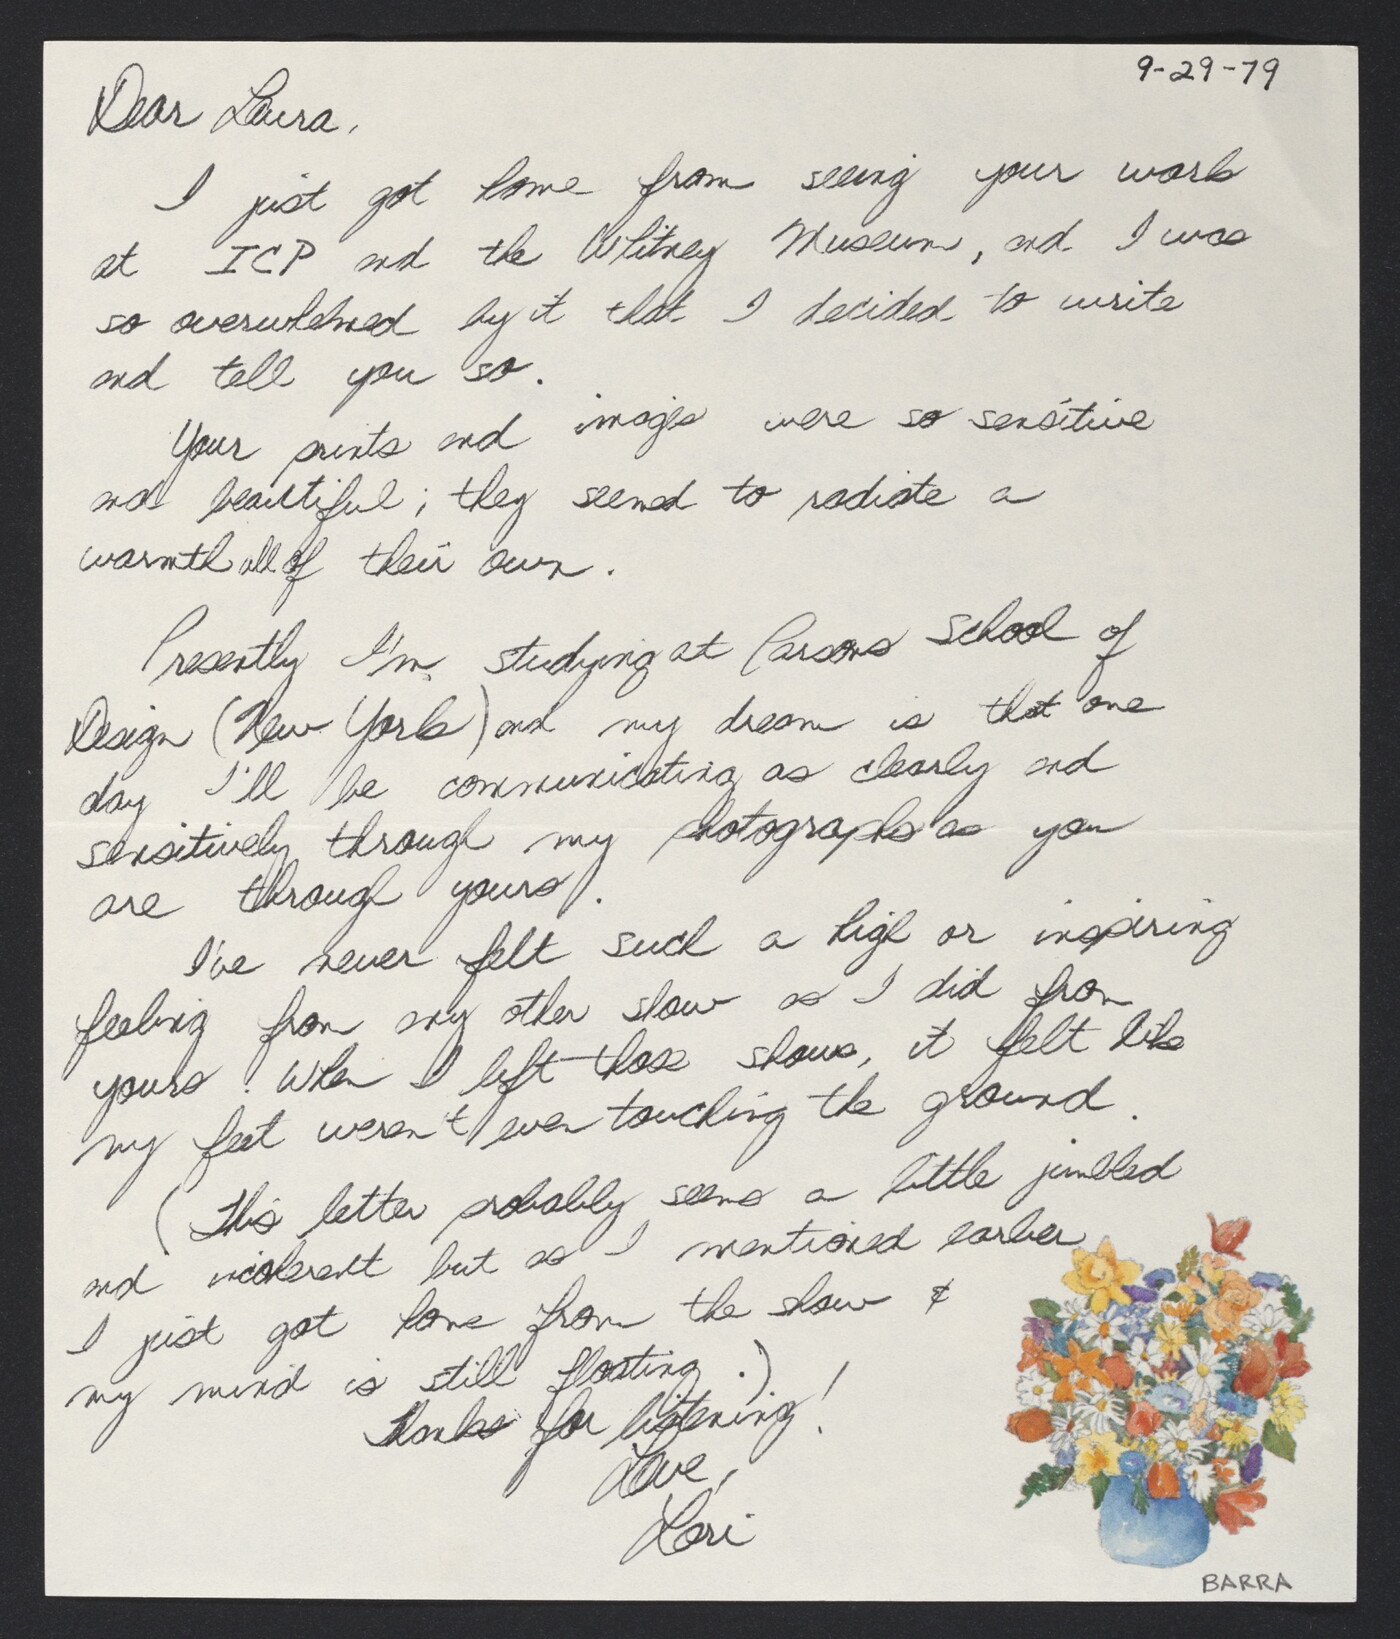 9-29-79
Dear Laura,
I just got home from seeing your work
at ICP and the Whitney Museum, and I was
so overwhelmed by it that I decided to write
and tell you so.
Your prints and images were so sensitive
and beautiful; they seemed to radiate a
warmth all of their own.
Presently I'm studying at Parsons School of
Design (New York) and my dream is that one
day I'll be communicating as clearly and
sensitively through my photographs as you
are through yours.
I've never felt such a high or inspiring
feeling from any other show as I did from
yours! When I left those shows, it felt like
my feet weren't even touching the ground.
(This letter probably seems a little jumbled
and incoherent but as I mentioned earlier
I just got home from the show &
my mind is still floating.)
Thanks for listening!
Love,
Lori
BARRA